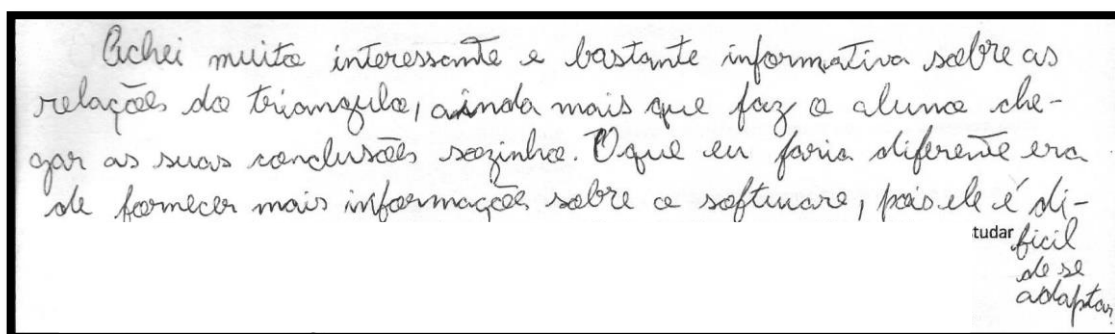 Achei muito interessante e bastante informativa sobre as
relações do triangulo, ainda mais que faz o aluno che-
gar as suas conclusões sozinho. O que eu faria diferente era
de fornecer mais informações sobre o software, pois ele é di-
tudar ficil
de se
adaptar